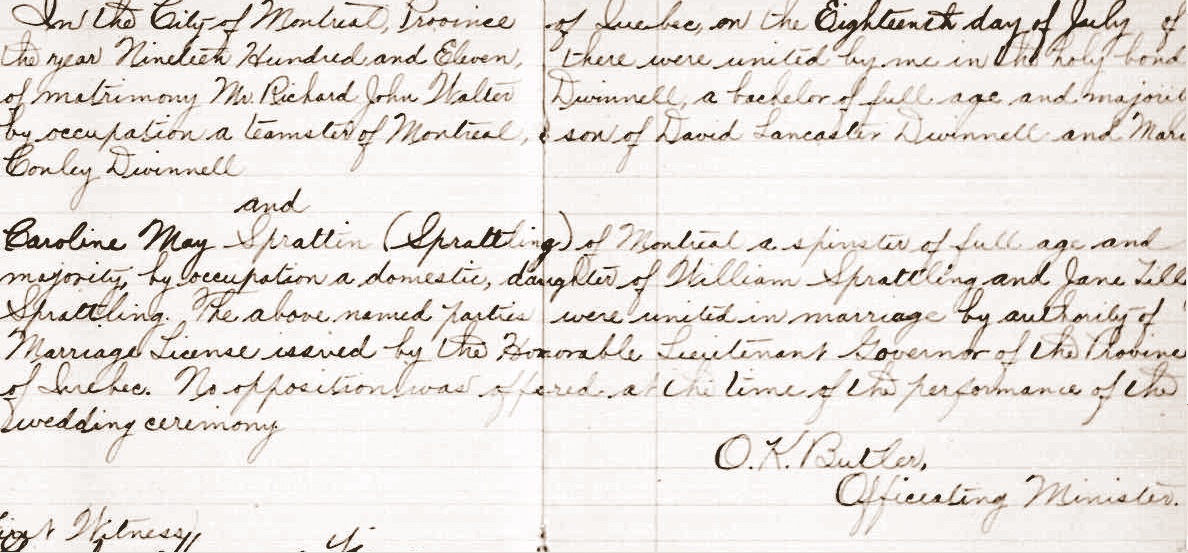 In the City of Montreal, Province of Quebec, on the Eighteenth day of July of
the year Nineteth Hundred and Eleven, there were united by me in the holy bond
of matrimony Mr. Richard John Walter Dwinnell, a bachelor of full age and majorit
by occupation a teamster of Montreal, & son of David Lancaster Dwinnell and Mari
Conley Dwinnell
and
Caroline May Sprattin (Sprattling) of Montreal a spinster of full age and
majority, by occupation a domestic, daughter of William Sprattling and Jane Till
Sprattling. The above named parties were united in marriage by authority of
Marriage License issued by the Honorable Lieutenant Governor of the Province
of Quebec. No opposition was offered at the time of the performance of the
wedding ceremony
O. K. Butler,
Officiating Minister.
First Witness